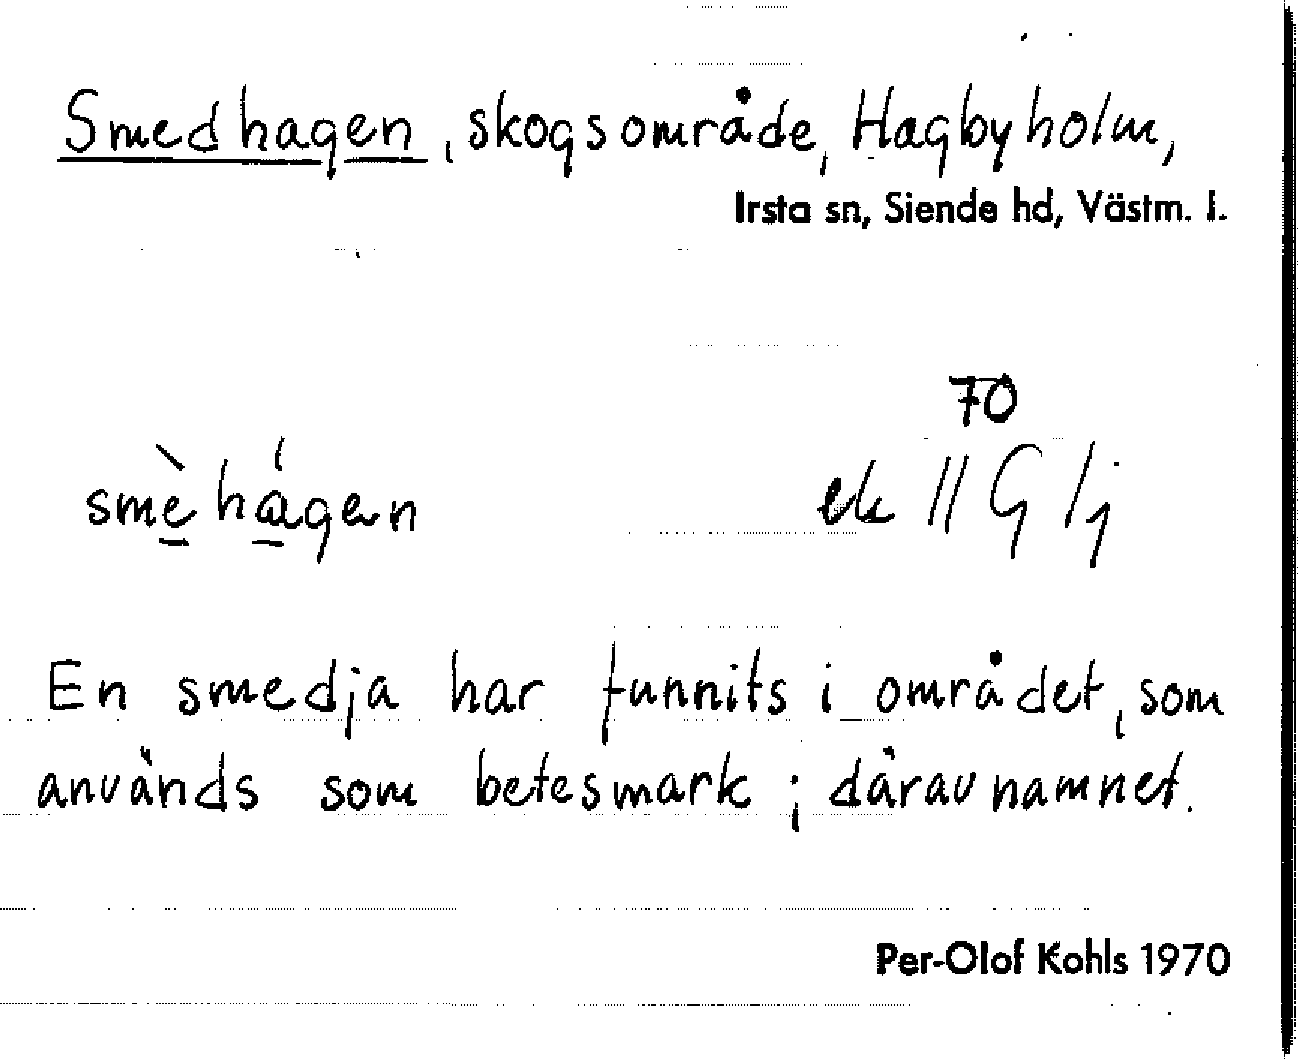 Smedhagen, skogsområde, Hagbyholm,
Irsta sn, Siende hd, Västm. l.
70
smè hágen ek 11 G 1j
En smedja har funnits i området, som
används som betesmark; därav namnet.
Per-Olof Kohls 1970